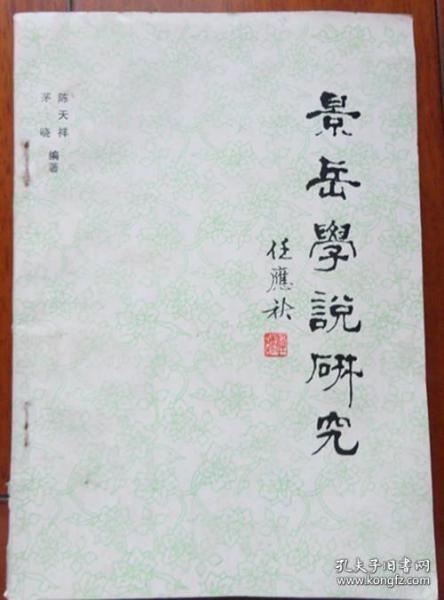 景岳學說研究
任應秋
陈天祥
茅晓 编著
孔夫子旧书网
www.kongfz.com